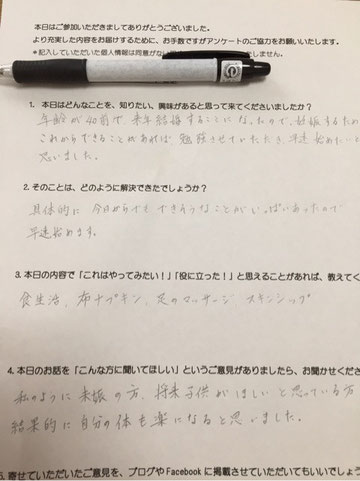 本日はご参加いただきましてありがとうございました。
より充実した内容をお届けするために、お手数ですがアンケートのご協力をお願いいたします。
*記入していただいた個人情報は同意がない
しません。
1. 本日はどんなことを、知りたい、興味があると思って来てくださいましたか?
年齢が40前で来年結婚することになったので、妊娠するため
これからできることがあれば勉強させていただき、早速始めたいと
思いました。
2. そのことは、どのように解決できたでしょうか?
具体的に今日からでもできそうなことがいっぱいあったので
早速始めます。
3. 本日の内容で「これはやってみたい!」「役に立った!」と思えることがあれば、教えてく
食生活、布ナプキン、足のマッサージ スキンシップ
4. 本日のお話を「こんな方に聞いてほしい」というご意見がありましたら、お聞かせくださ
私のように未妊の方、将来子供がほしいと思っている方
結果的に自分の体も楽になると思いました。
5. 寄せていただいたご意見を、ブログやFacebookに掲載させていただいてもいいでしょ